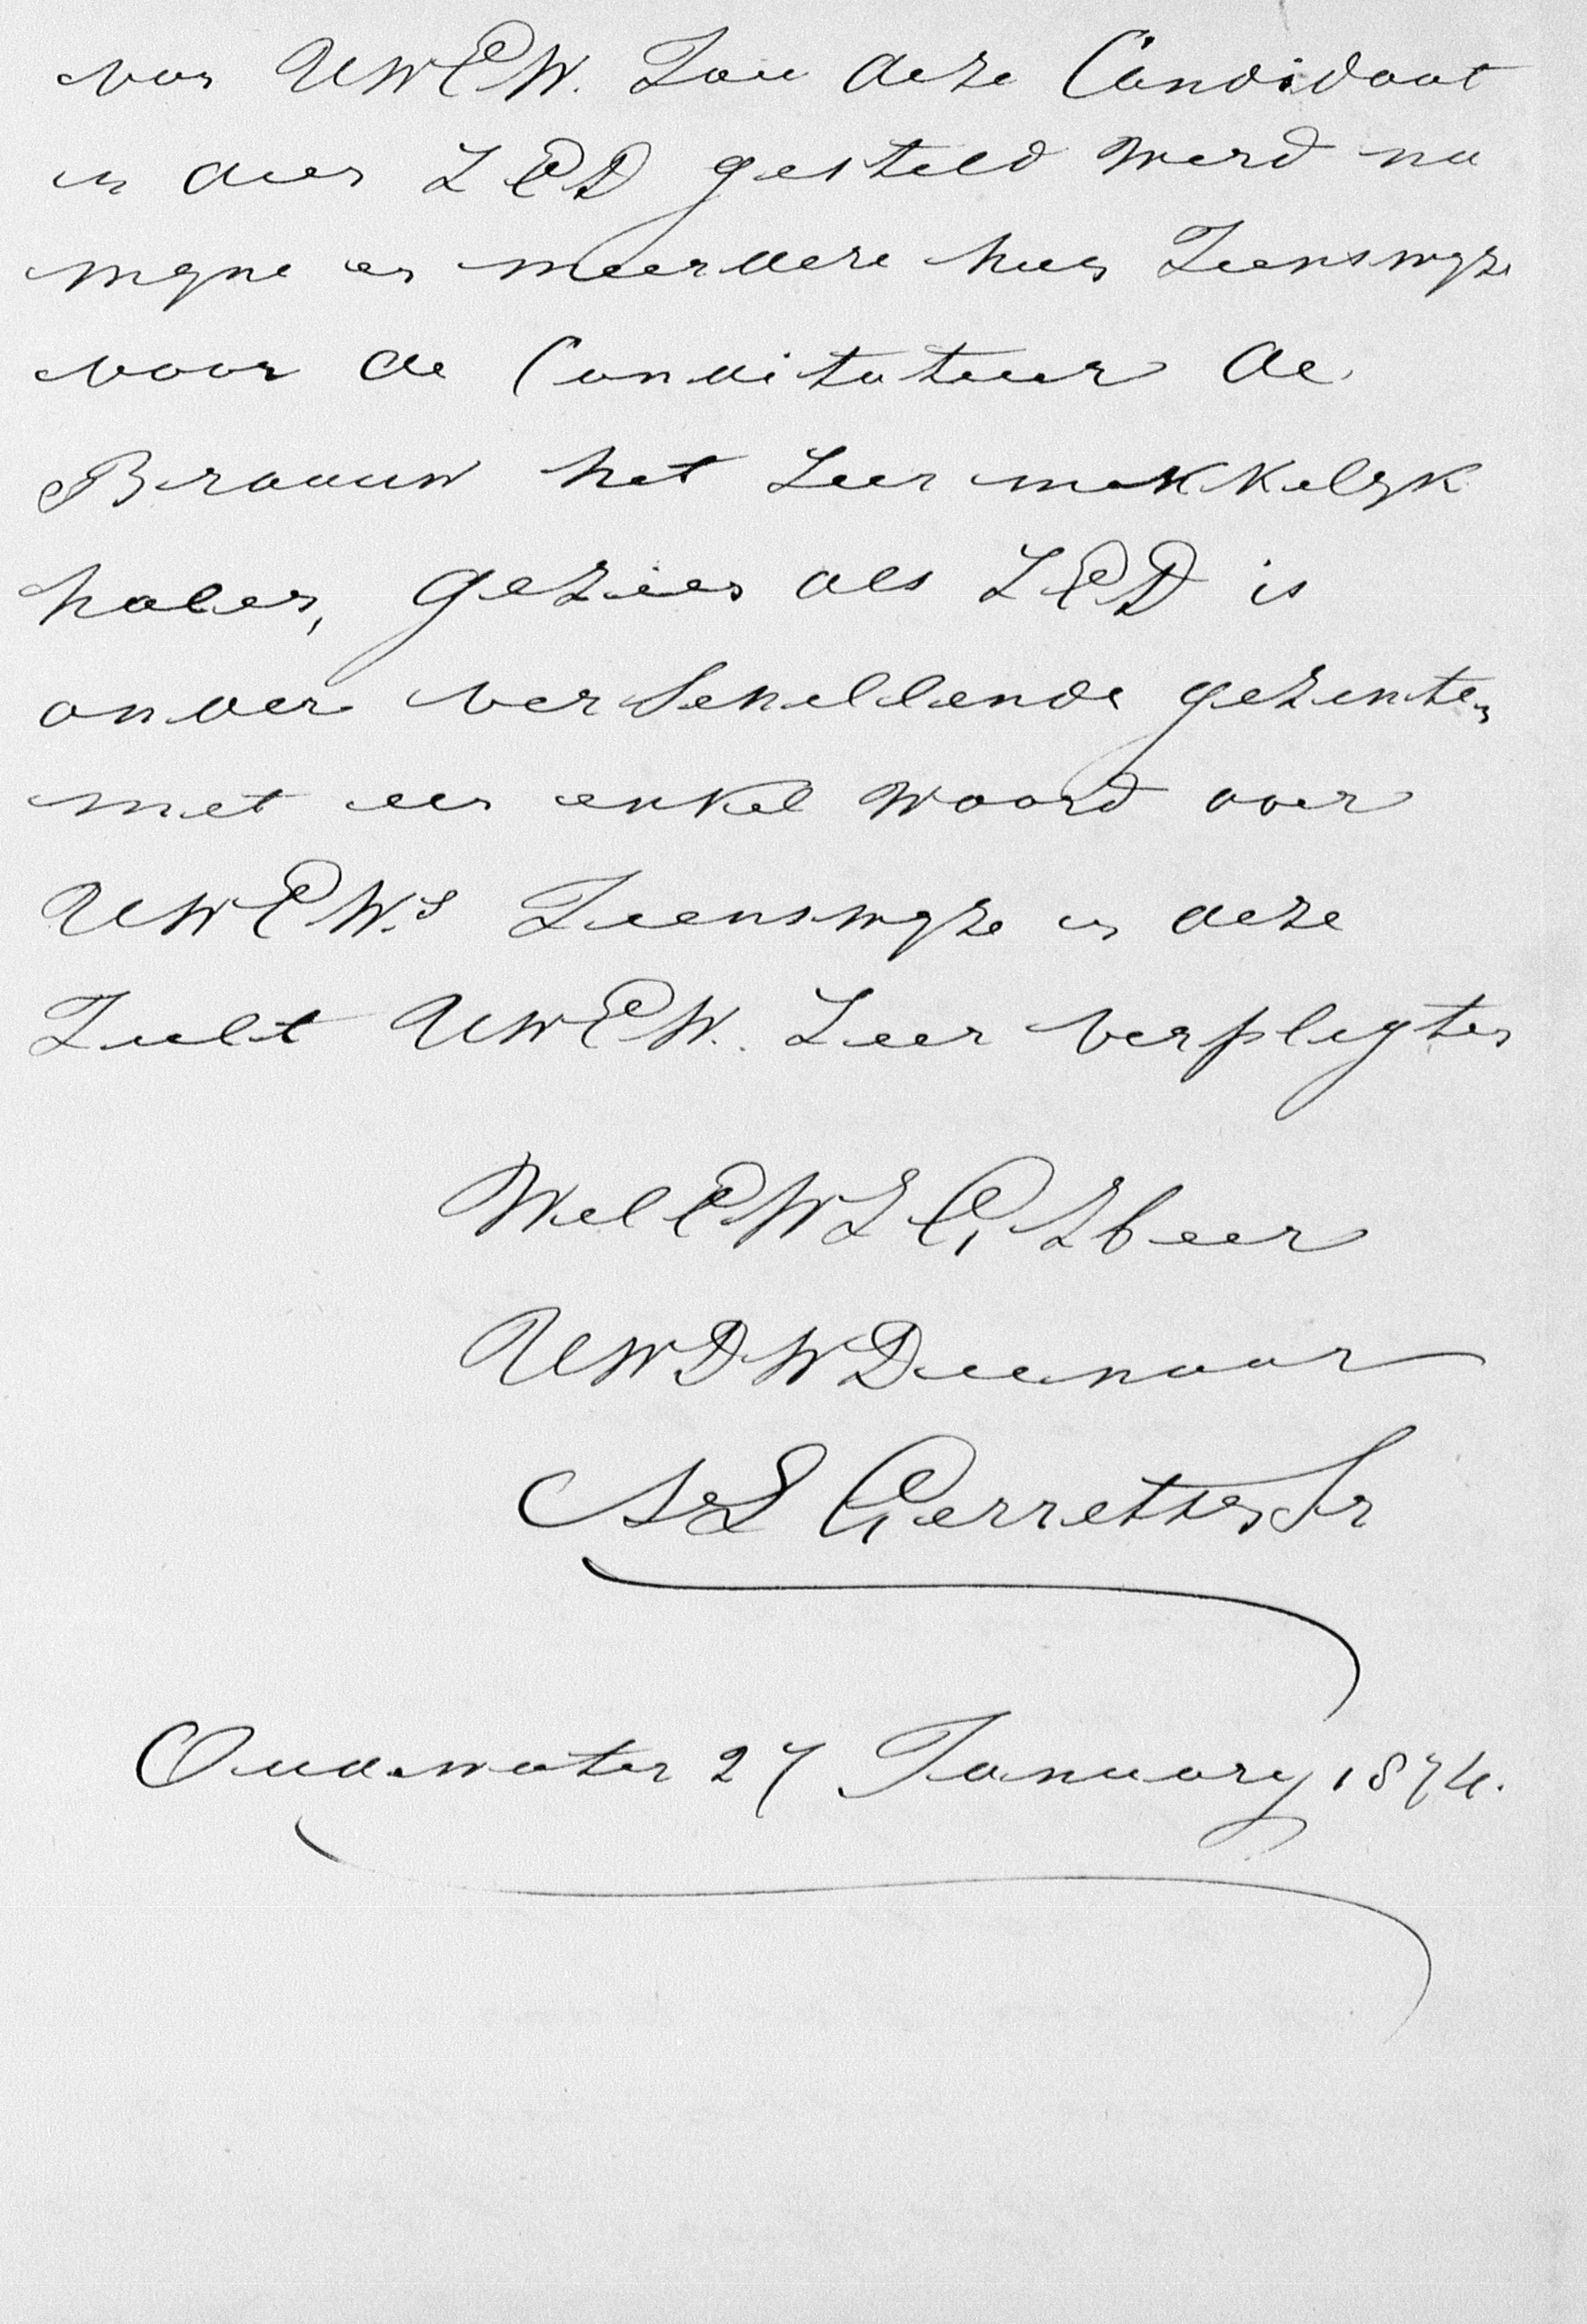 van UWEW. Zou deze Candidaat
en dien ZED gesteld werd na
myne en meerdere hun Zienswyze
voor de Candidatuur de
Braauw het zeer makkelyk
halen, gezien als ZED is
onder verschillende gezinten
met een enkel woord over
UWEW.s Zienswyze in deze
Zult UWEW. Zeer verpligten
WelEWZG, Heer
UWDWDienaar
Gerretsen Sr
Oudewater 27 January 1874.